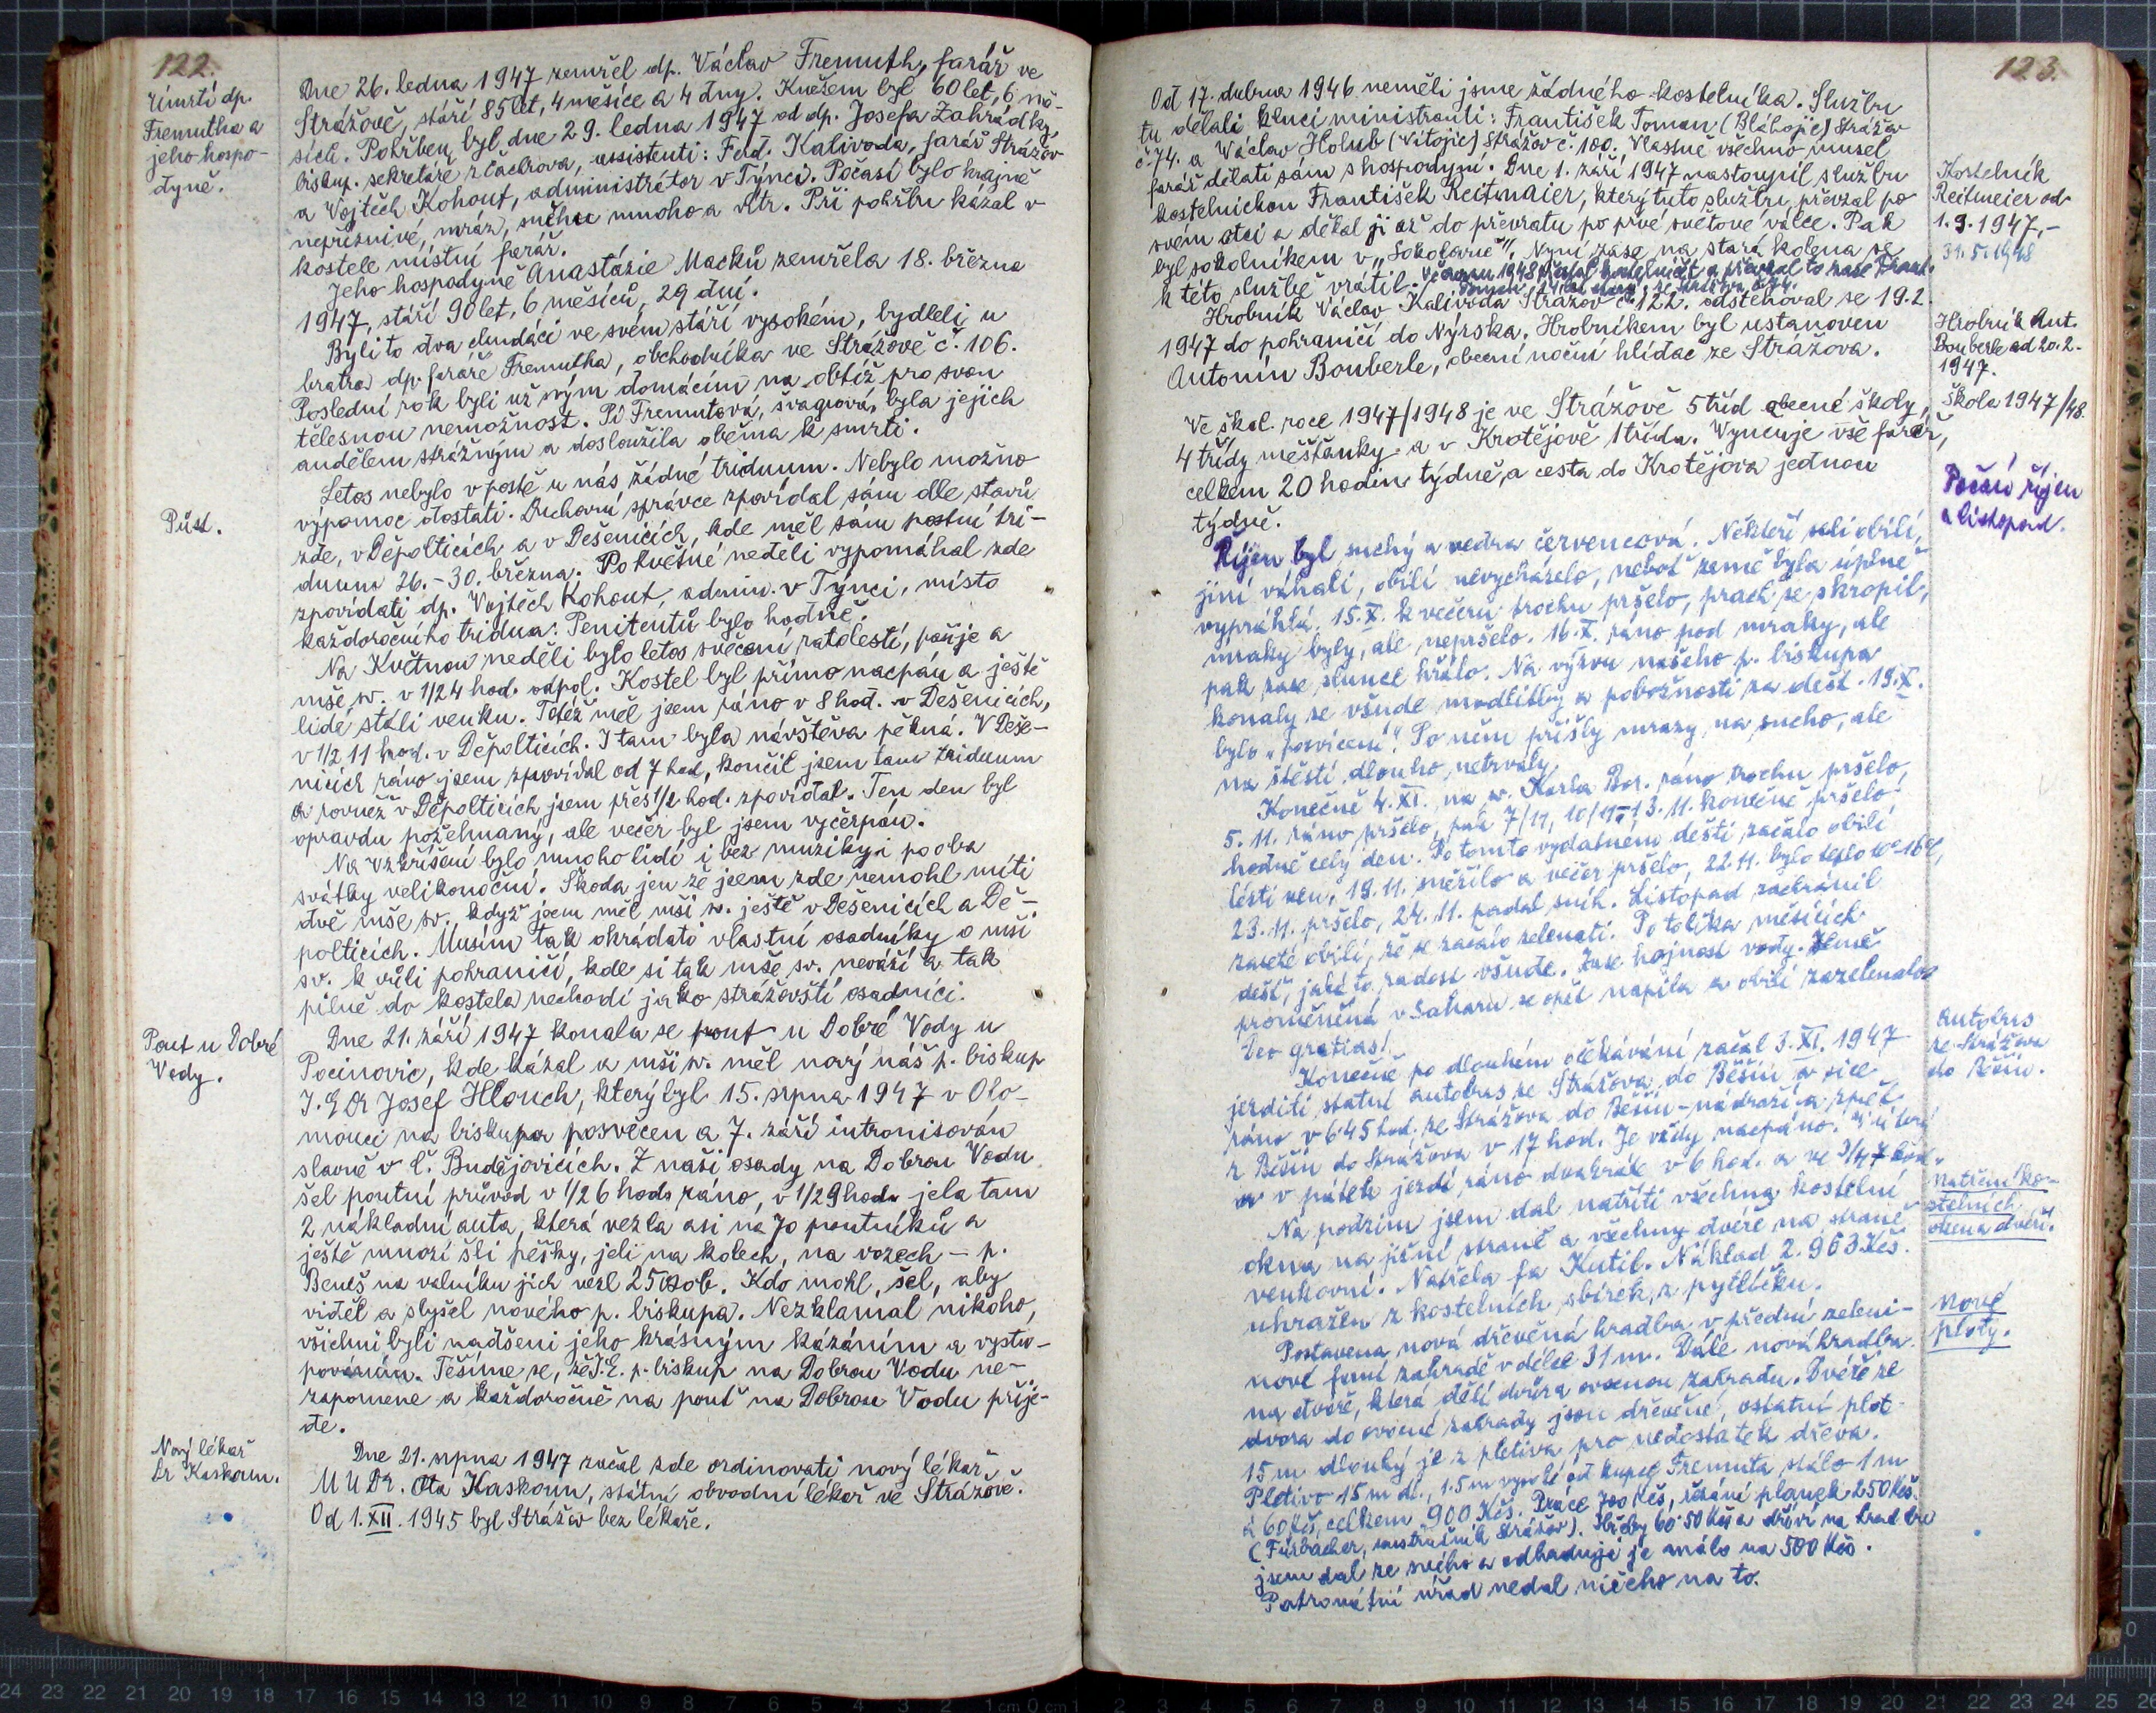 122.
Úmrtí dp.
Fremutha a
jeho hospo-
dyně.
Dne 26. ledna 1947 zemřel dp. Václav Fremuth, farář ve
Strážově, stáří 85 let, 4 měsíce a 4 dny. Knězem byl 60 let, 6 mě-
síců. Pohřben byl dne 29. ledna 1947 od dp. Josefa Zahrádky,
biskup. sekretáře z Čachrova, assistenti: Ferd. Kalivoda, farář Strážov
a Vojtěch Kohout, administrátor v Týnci. Počasí bylo krajně
nepříznivé, mráz, sněhu mnoho a vítr. Při pohřbu kázal v
kostele místní farář.
Jeho hospodyně Anastázie Macků zemřela 18. března
1947, stáří 90 let, 6 měsíců, 29 dní.
Byli to dva chudáci ve svém stáří vysokém, bydleli u
bratra dp. faráře Fremutha, obchodníka ve Strážově č. 106.
Poslední rok byli už svým domácím na obtíž pro svou
tělesnou nemožnost. Pí Fremutová, švagrová, byla jejich
andělem strážným a dosloužila oběma k smrti.
Půst.
Letos nebylo v postě u nás žádné triduum. Nebylo možno
výpomoc dostati. Duchovní správce zpovídal sám dle stavů
zde, v Děpolticích a v Dešenicích, kde měl sám postní tri-
duum 26.-30. března. Po květné neděli vypomáhal zde
zpovídati dp. Vojtěch Kohout, admin. v Týnci, místo
každoročního tridua. Penitentů bylo hodně.
Na Květnou neděli bylo letos svěcení ratolestí, pašije a
mše sv. v 1/2 4 hod. odpol. Kostel byl přímo nacpán a ještě
lidé stáli venku. Totéž měl jsem ráno v 8 hod. v Dešenicích,
v 1/2 11 hod. v Děpolticích. I tam byla návštěva pěkná. V Deše-
nicích ráno jsem zpovídal od 7 hod, končil jsem tam triduum
a rovněž v Děpolticích jsem přes 1/2 hod. zpovídal. Ten den byl
opravdu požehnaný, ale večer byl jsem vyčerpán.
Na Vzkříšení bylo mnoho lidí i bez muziky i po oba
svátky velikonoční. Škoda jen že jsem zde nemohl míti
dvě mše sv. když jsem měl mši sv. ještě v Dešenicích a Dě-
polticích. Musím tak okrádati vlastní osadníky o mši
sv. k vůli pohraničí, kde si tak mše sv. neváží a tak
pilně do kostela nechodí jako strážovští osadníci.
Pout u Dobré
Vody.
Dne 21. září 1947 konala se pout u Dobré Vody u
Pocinovic, kde kázal a mši sv. měl nový náš p. biskup
J. E. Dr Josef Hlouch, který byl 15. srpna 1947 v Olo-
mouci na biskupa posvěcen a 7. září intronisován
slavně v Č. Budějovicích. Z naší osady na Dobrou Vodu
šel poutní průvod v 1/2 6 hod. ráno, v 1/2 9 hod. jela tam
2 nákladní auta, která vezla asi na 70 poutníků a
ještě mnozí šli pěšky, jeli na kolech, na vozech – p.
Beneš na valníku jich vezl 25 osob. Kdo mohl, šel, aby
viděl a slyšel nového p. biskupa. Nezklamal nikoho,
všichni byli nadšeni jeho krásným kázáním a vystu-
pováním. Těšíme se, že J. E. p. biskup na Dobrou Vodu ne-
zapomene a každoročně na pouť na Dobrou Vodu přije-
de.
Nový lékař
Dr Kaskoun.
Dne 21. srpna 1947 začal zde ordinovati nový lékař,
MUDr. Ota Kaskoun, státní obvodní lékař ve Strážově.
Od 1. XII. 1945 byl Strážov bez lékaře.
123.
Od 17. dubna 1946 neměli jsme žádného kostelníka. Službu
tu dělali kluci ministranti: František Toman (Bláhojic) Strážov
č. 74. a Václav Holub (Vítojic) Strážov č. 180. Vlastně všechno musel
farář dělati sám s hospodyní. Dne 1. září 1947 nastoupil službu
kostelnickou František Reitmaier, který tuto službu převzal po
svém otci a dělal ji až do převratu po prvé světové válce. Pak
byl sokolníkem v „Sokolovně". Nyní zase na stará kolena se
k této službě vrátil. V červnu 1948 nechal kostelničit a převzal to zase Frant.
Toman, 14 let starý, ze Strážova č. 74.
Kostelník
Reitmeier od
1. 9. 1947,-
31. 5. 1948
Hrobník Václav Kalivoda Strážov č. 122. odstěhoval se 19. 2.
1947 do pohraničí do Nýrska. Hrobníkem byl ustanoven
Antonín Bouberle, obecní noční hlídač ze Strážova.
Hrobník Ant.
Bouberle od 20. 2.
1947.
Ve škol. roce 1947/1948 je ve Strážově 5 tříd obecné školy,
4 třídy měšťanky a v Krotějově 1 třída. Vyučuje vše farář,
celkem 20 hodin týdně, a cesta do Krotějova jednou
týdně.
Škola 1947/48.
Počasí říjen
a listopad.
Říjen byl suchý a vedra červencová. Někteří seli obilí,
jiní váhali, obilí nevycházelo, neboť země byla úplně
vyprahlá. 15. X. k večeru trochu pršelo, prach se skropil,
mraky byly, ale nepršelo. 16. X. ráno pod mraky, ale
pak zase slunce hřálo. Na výzvu našeho p. biskupa
konaly se všude modlitby a pobožnosti za déšť. 19. X.
bylo „posvícení". Po něm přišly mrazy, na sucho, ale
na štěstí dlouho netrvaly.
Konečně 4. XI. na sv. Karla Bor. ráno trochu pršelo,
5. 11. ráno pršelo, pak 7/11, 10/11, 13. 11. konečně pršelo,
hodně celý den. Po tomto vydatném dešti začalo obilí
lézti ven, 19. 11. sněžilo a večer pršelo, 22. 11. bylo teplo
23. 11. pršelo, 24. 11. padal sníh. Listopad zachránil
zaseté obilí, že se začalo zelenati. Po tolika měsících
déšť, jaká to radost všude. Zase hojnost vody. Země
proměněná v Saharu se opět napila a obilí zazelenalo
Deo gratias!
Konečně po dlouhém očekávání začal 3. XI. 1947
jezditi státní autobus ze Strážova do Běšin a sice
ráno v 6'45 hod. ze Strážova do Běšin-nádraží a zpět
z Běšin do Strážova v 17 hod. Je vždy nacpáno. V úterý
a v pátek jezdí ráno dvakráte v 6 hod. a ve 3/4 7 hod.
Autobus
ze Strážova
do Běšin.
Na podzim jsem dal natříti všechna kostelní
okna na jižní straně a všechny dvéře na straně
venkovní. Natřela fa Kutil. Náklad 2.963 Kčs.
uhražen z kostelních sbírek, z pytlíčku.
Natření ko-
stelních
oken a dveří.
Postavena nová dřevěná hradba v přední zeleni-
nové farní zahradě v délce 31 m. Dále nová hradba
na dvoře, která dělí dvůr a ovocnou zahradu. Dvéře ze
dvora do ovocné zahrady jsou dřevěné, ostatní plot
15 m dlouhý je z pletiva pro nedostatek dřeva.
Pletivo 15 m dl., 1.5 m vysoké od kupce Fremuta, stálo 1 m
á 60 Kčs, celkem 900 Kčs. Práce 700 Kčs, řezání planek 250 Kčs.
(Fürbacher, Strážov). Hřeby 60'50 Kčs a dříví na hradbu
jsem dal ze svého a odhaduji je málo na 500 Kčs.
Patronátní úřad nedal ničeho na to.
Nové
ploty.